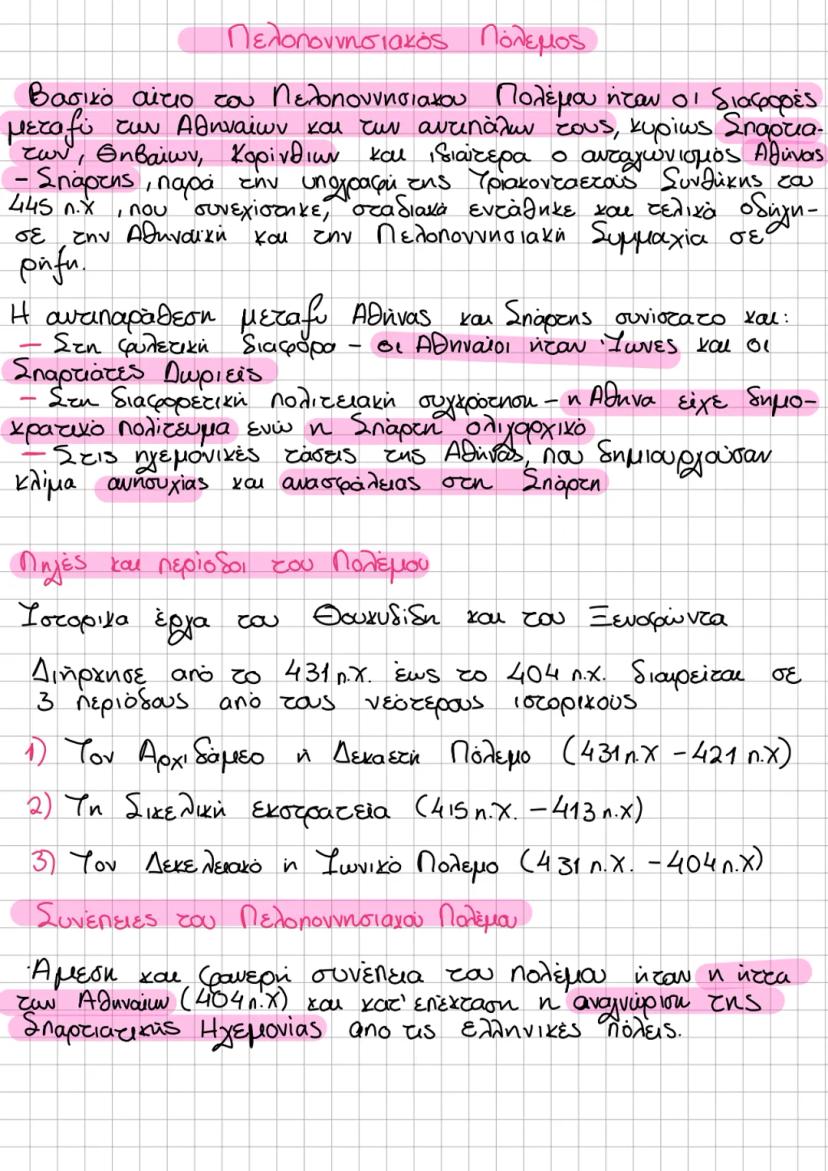 Πελοποννησιακός Πόλεμος
Βασικό αίτιο του Πελοποννησιακου Πολέμου ήταν οι διαφορές
μεταξύ των Αθηναίων και των αντιπάλων τους, κυρίως Σπαρτια-
των, Θηβαίων, Κορίνθιων και ιδιαίτερα ο ανταγωνισμός Αθήνας
- Σπάρτης, παρά την υπογραφή της Τριακονταετούς Συνθήκης του
445 π.Χ , που συνεχίστηκε, σταδιακά εντάθηκε και τελικά οδήγη-
σε την Αθηναϊκή και την Πελοποννησιακή Συμμαχία σε
ρήξη.
Η αντιπαράθεση μεταξύ Αθήνας και Σπάρτης συνίστατο και:
- Στη φυλετική διαφορά - οι Αθηναίοι ήταν Ίωνες και οι
Σπαρτιάτες Δωριείς
- Στη διαφορετική πολιτειακή συγκρότηση - η Αθήνα είχε δημο-
κρατικό πολίτευμα ενώ η Σπάρτη ολιγαρχικό
- Στις ηγεμονικές τάσεις της Αθήνας, που δημιουργούσαν
κλίμα ανησυχίας και ανασφάλειας στη Σπάρτη
Πηγές και περίοδοι του Πολέμου
Ιστορικα έργα του Θουκυδίδη και του Ξενοφώντα
Διήρκησε από το 431 π.Χ. έως το 404 π.Χ. διαιρείται σε
3 περιόδους από τους νεότερους ιστορικούς
1) Τον Αρχιδάμειο ή Δεκαετή Πόλεμο (431 π.Χ - 421 π.Χ)
2) Τη Σικελική εκστρατεία (415 π.Χ. - 413 π.Χ)
3) Τον Δεκελεικό ή Ιωνικό Πολεμο (431 π.Χ. - 404 π.Χ)
Συνέπειες του Πελοποννησιακού Πολέμου
Άμεση και φανερή συνέπεια του πολέμου ήταν η ήττα
των Αθηναίων (404 π.Χ) και κατ' επέκταση η αναγνώριση της
Σπαρτιατικής Ηγεμονίας απο τις ελληνικές πόλεις.